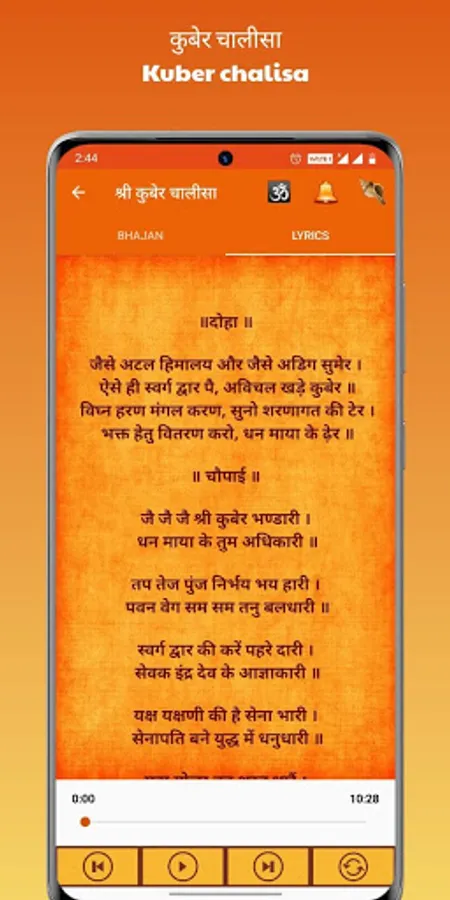 कुबेर चालीसा
Kuber chalisa
2:44
श्री कुबेर चालीसा
BHAJAN
LYRICS
॥दोहा ॥
जैसे अटल हिमालय और जैसे अडिग सुमेर ।
ऐसे ही स्वर्ग द्वार पै, अविचल खड़े कुबेर ॥
विघ्न हरण मंगल करण, सुनो शरणागत की टेर ।
भक्त हेतु वितरण करो, धन माया के ढ़ेर ॥
॥ चौपाई ॥
जै जै जै श्री कुबेर भण्डारी ।
धन माया के तुम अधिकारी ॥
तप तेज पुंज निर्भय भय हारी ।
पवन वेग सम सम तनु बलधारी ॥
स्वर्ग द्वार की करें पहरे दारी ।
सेवक इंद्र देव के आज्ञाकारी ॥
यक्ष यक्षणी की है सेना भारी ।
सेनापति बने युद्ध में धनुधारी ॥
0:00
10:28